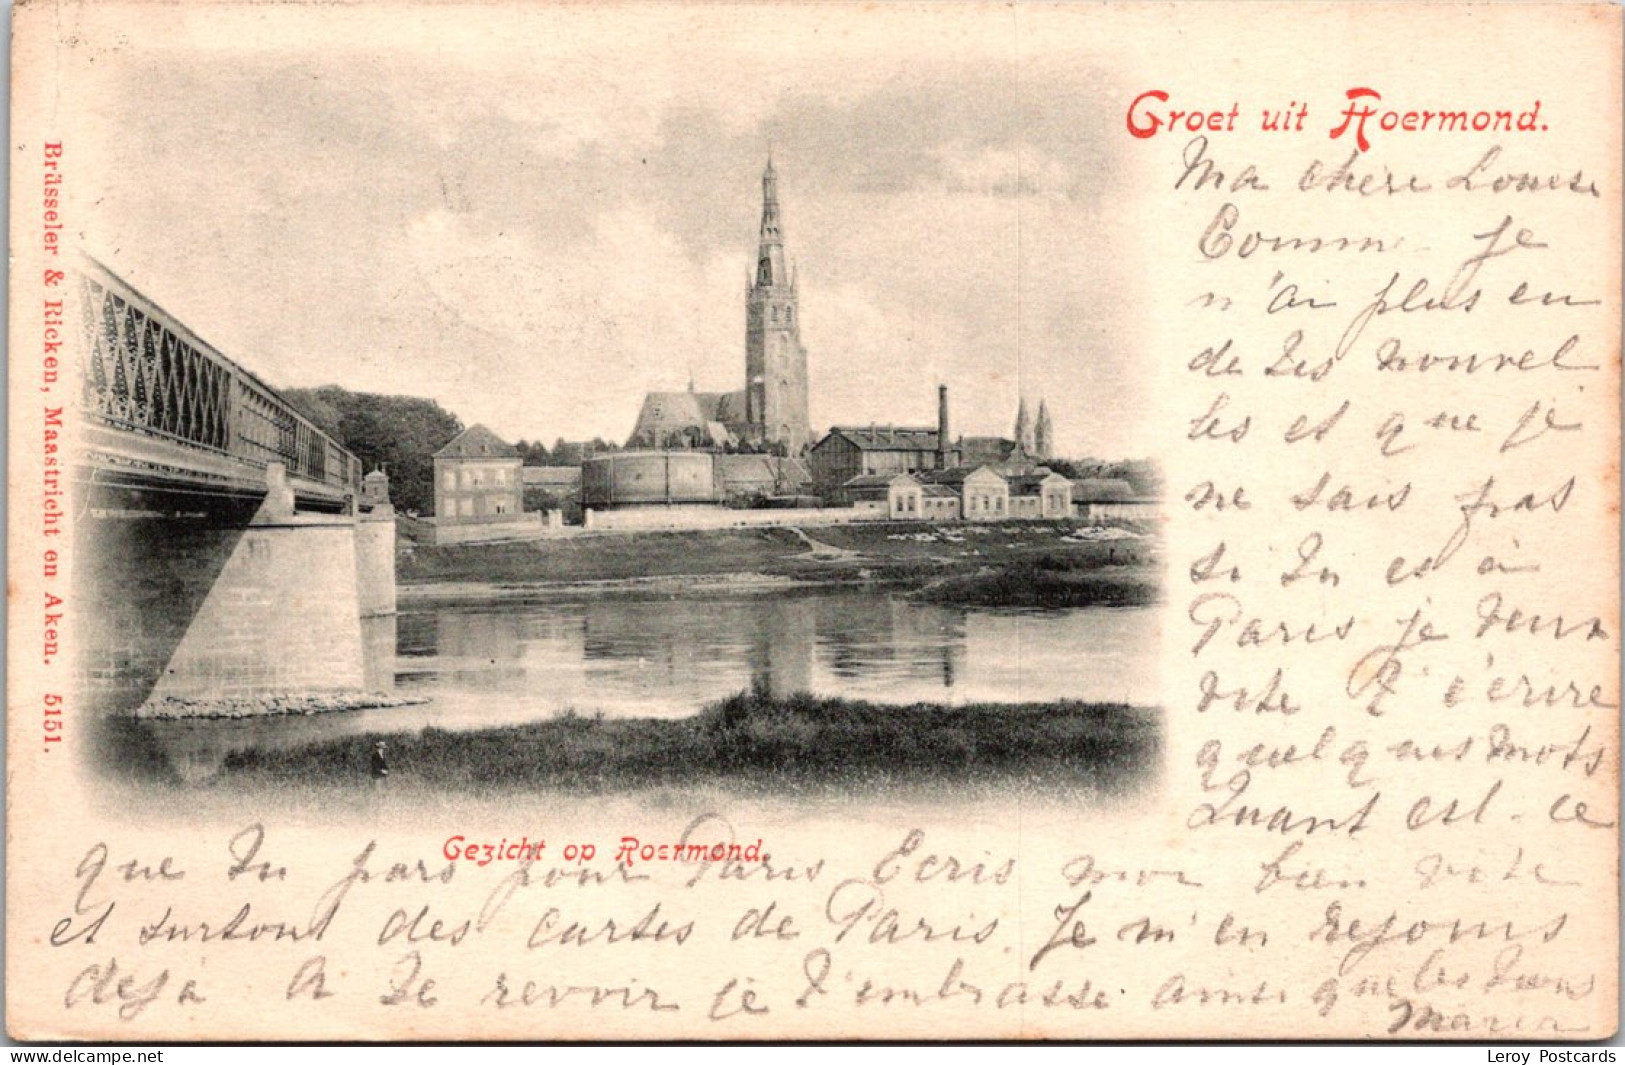 Groet uit Roermond.
Brüsseler & Ricken, Maastricht en Aken. 5151.
Gezicht op Roermond.
Ma chère Louise
Comme je
n'ai plus eu
de tes nouvel
les et que je
ne sais pas
si tu es à
Paris je veux
vite t'écrire
quelques mots
Quant est-ce
que tu pars pour Paris Ecris moi bien vite
et surtout des cartes de Paris. Je m'en rejouis
deja A te revoir je t'embrasse ainsi que les tiens
Maria
delcampe.net
Leroy Postcards